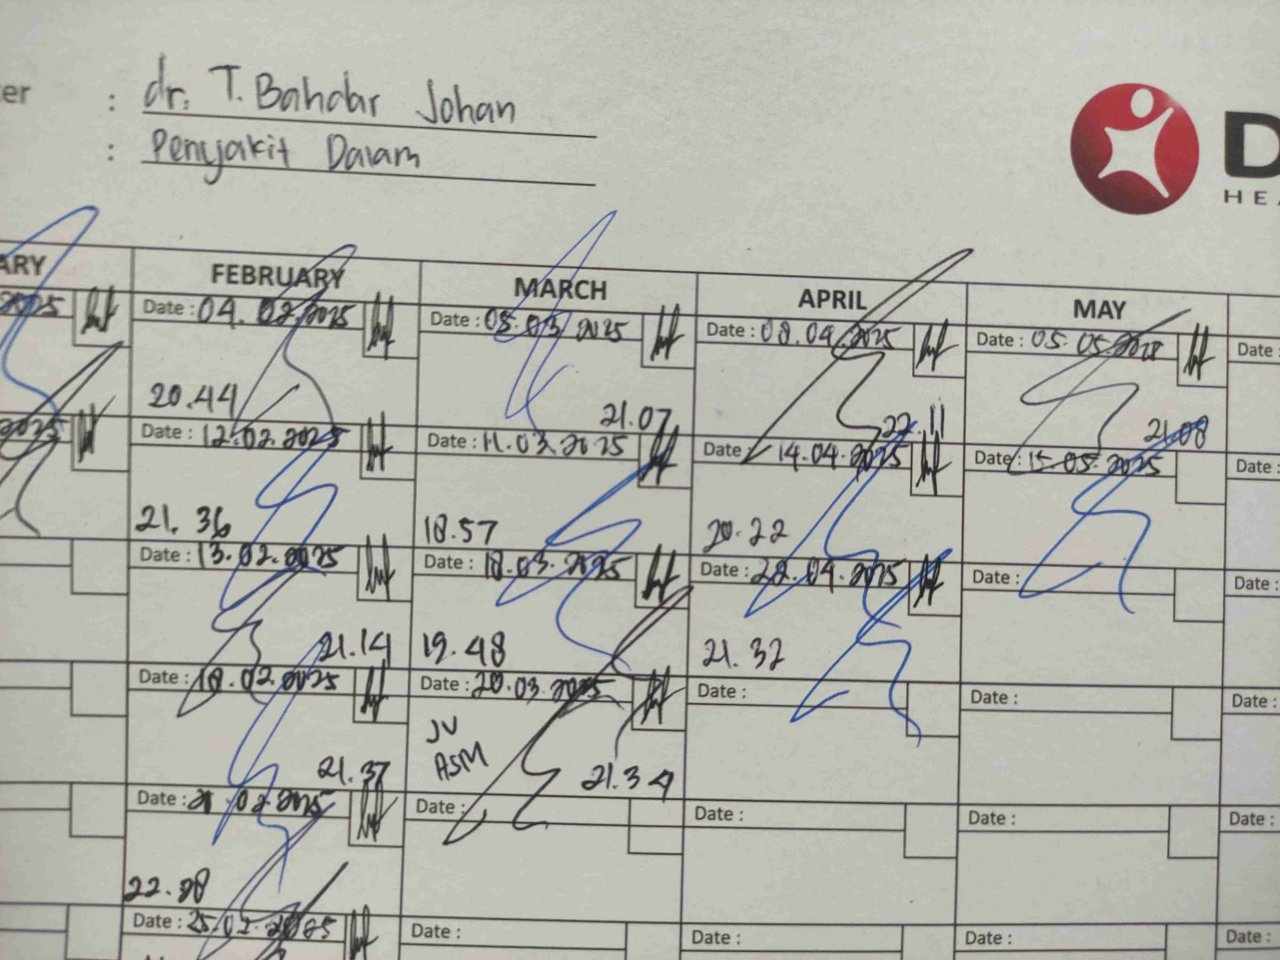 er : dr. T. Bahdar Johan
: Penyakit Dalam
D
HEA
ARY FEBRUARY MARCH APRIL MAY
2025 Date : 04.02.2025 Date : 05.03.2025 Date : 08.04.2025 Date : 05.05.2025 Date :
20.44 21.07 22.11 21.08
2025 Date : 12.02.2025 Date : 11.03.2025 Date : 14.04.2025 Date : 15.05.2025 Date :
21.36 18.57 20.22
Date : 13.02.2025 Date : 18.03.2025 Date : 22.04.2025 Date : Date :
21.14 19.48 21.32
Date : 18.02.2025 Date : 20.03.2025 Date : Date : Date :
JV
ASM
21.37 21.34
Date : 21.02.2025 Date : Date : Date : Date :
22.28
Date : 25.02.2025 Date : Date : Date : Date :